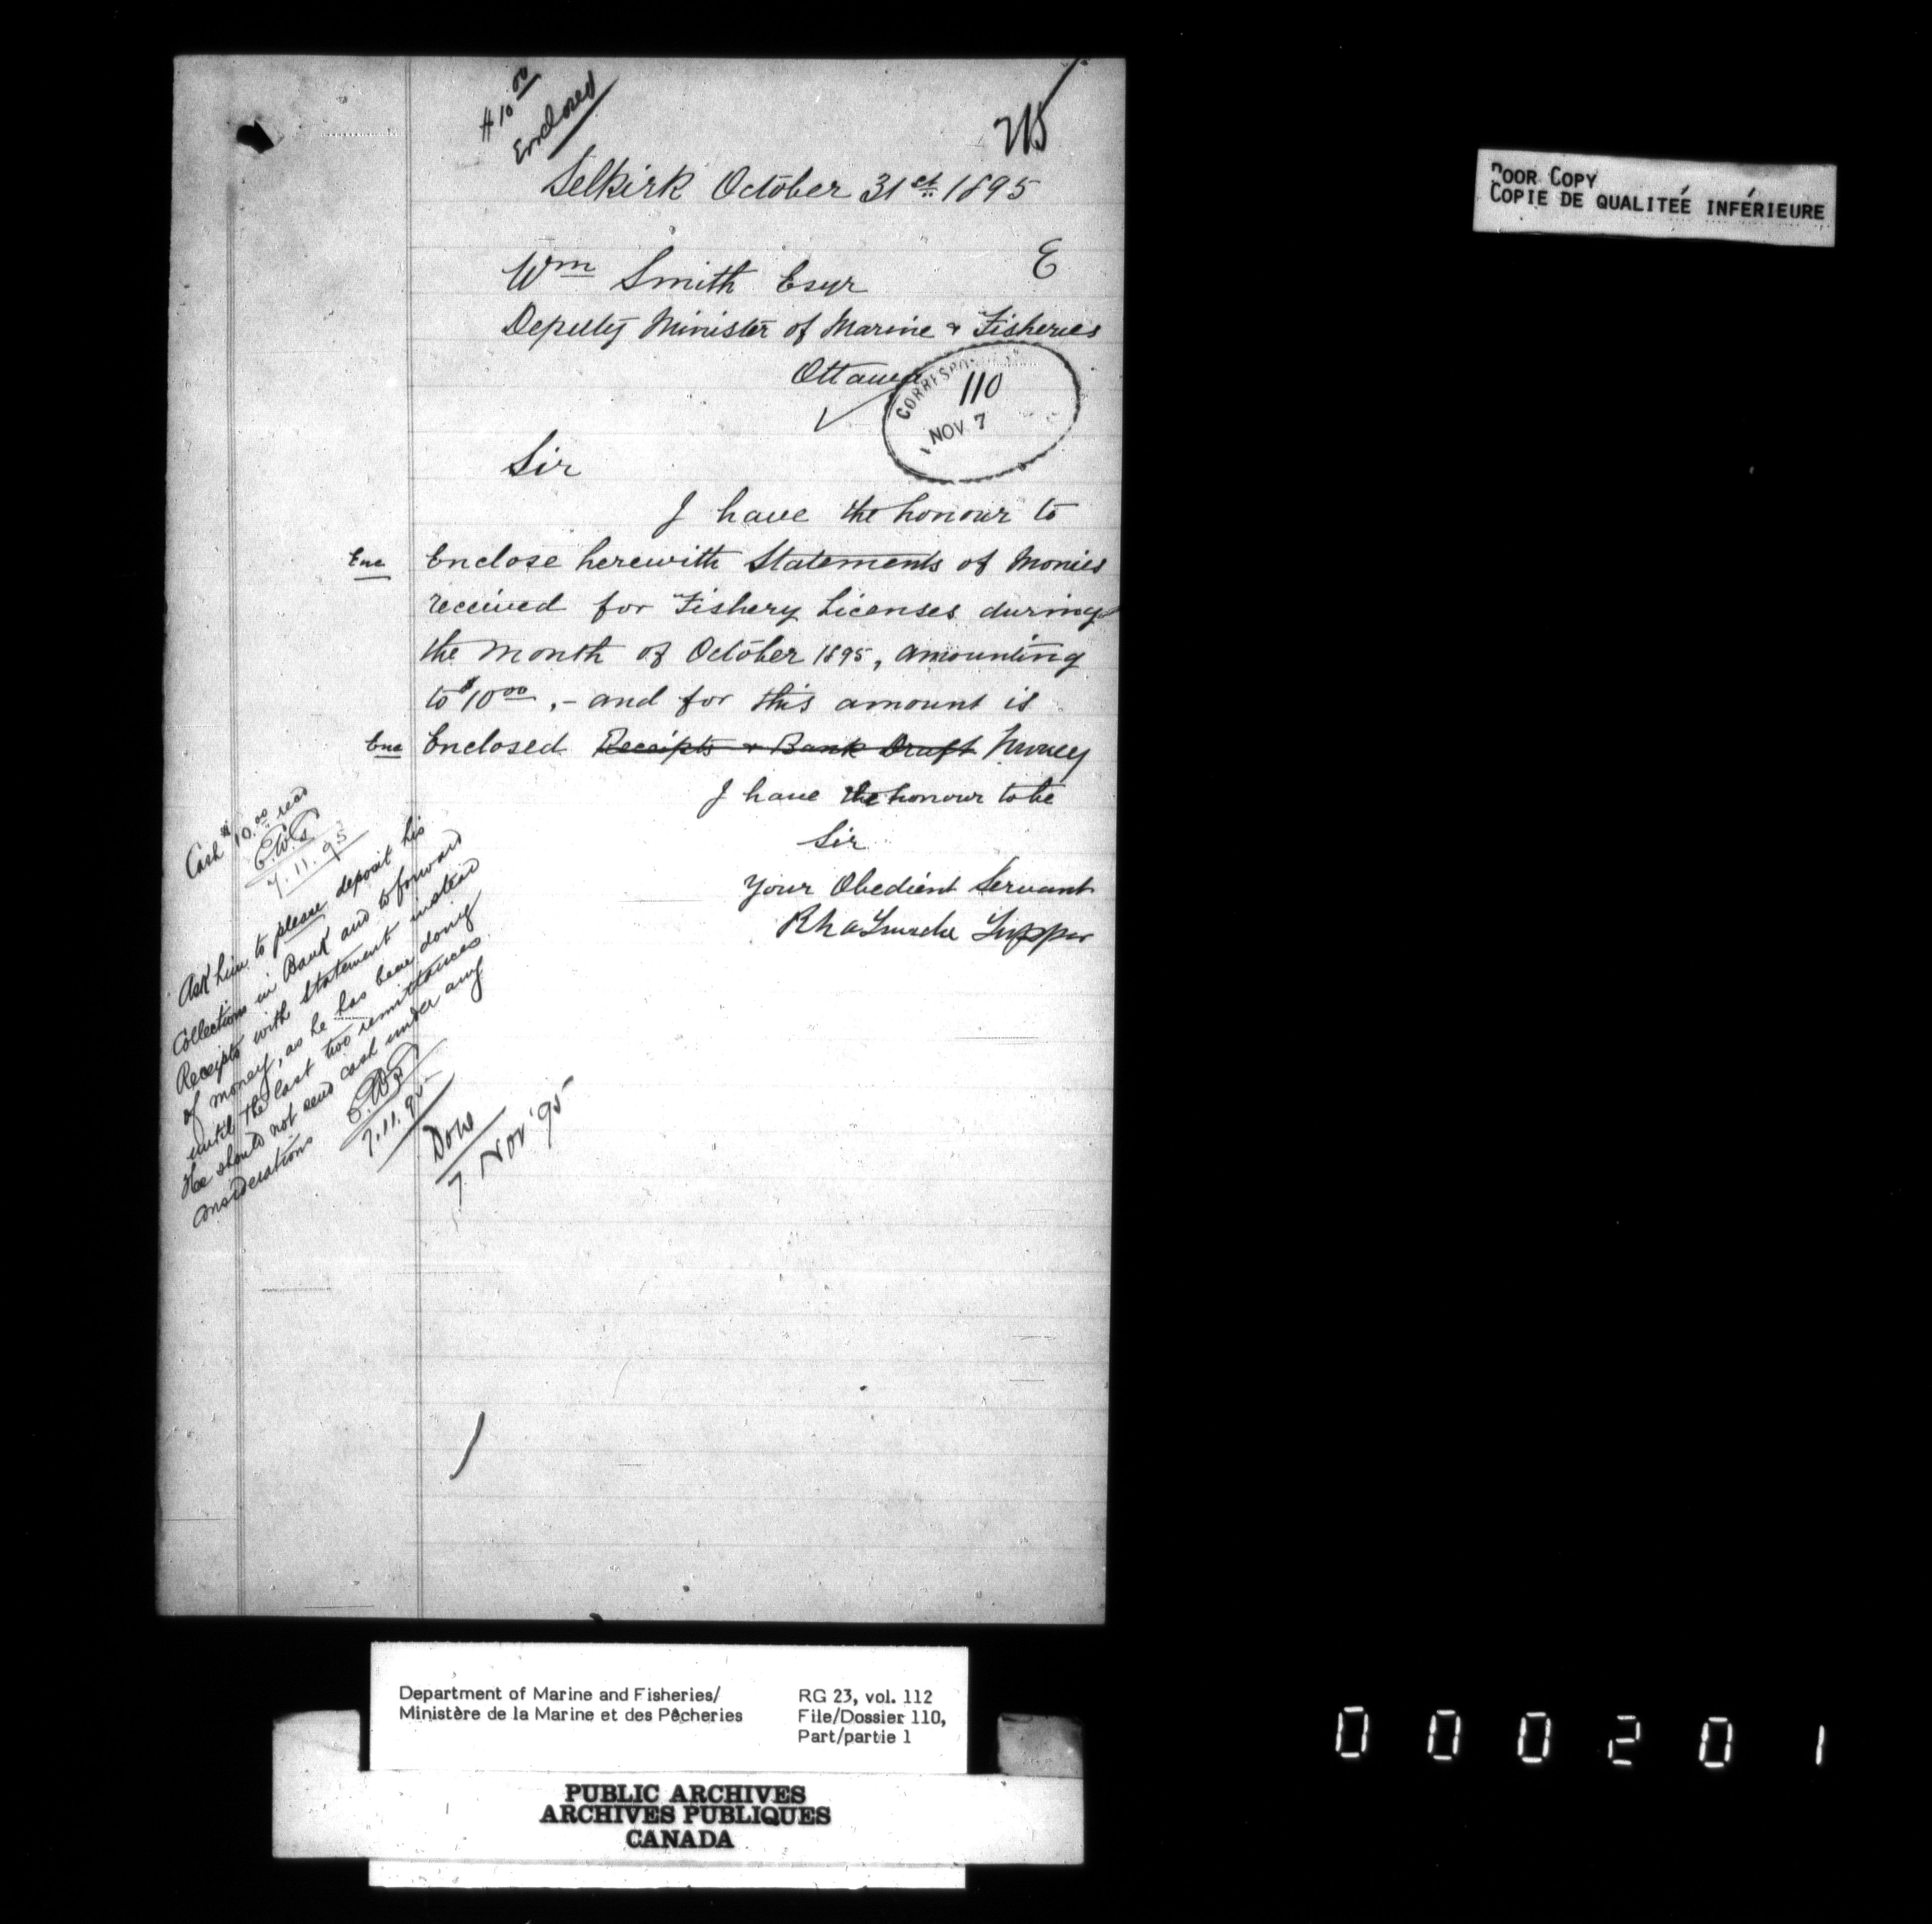 $10.00
Enclosed
215
Selkirk October 31st 1895
E
Wm Smith Esqr
Deputy Minister of Marine & Fisheries
Ottawa
110
NOV 7
Sir
I have the honour to
Enc Enclose herewith Statements of Monies
received for Fishery Licenses during
the month of October 1895, amounting
to $10.00, - and for this amount is
Enc Enclosed Receipts & Bank Draft Money
I have the honour to be
Sir
Your Obedient Servant
Tupper
Cash $10.00 recd
7.11.95
Ask him to please deposit his
Collections in Bank and to forward
Receipts with statement instead
of money, as he has been doing
until the last two remittances.
He should not send cash under any
consideration
7.11.95
Done
7 Nov '95
POOR COPY
COPIE DE QUALITEÉ INFÉRIEURE
Department of Marine and Fisheries/
Ministère de la Marine et des Pêcheries
RG 23, vol. 112
File/Dossier 110,
Part/partie 1
PUBLIC ARCHIVES
ARCHIVES PUBLIQUES
CANADA
000201